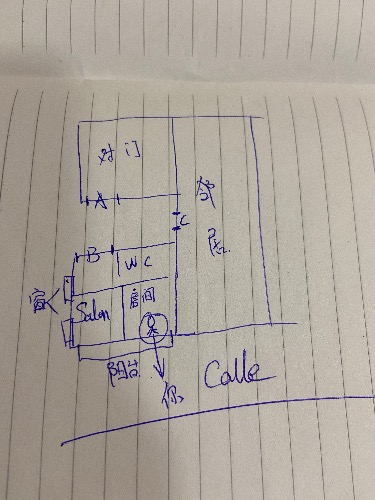 对门
A
邻
居
C
B
WC
窗
Salon
房间
阳台
你
Calle